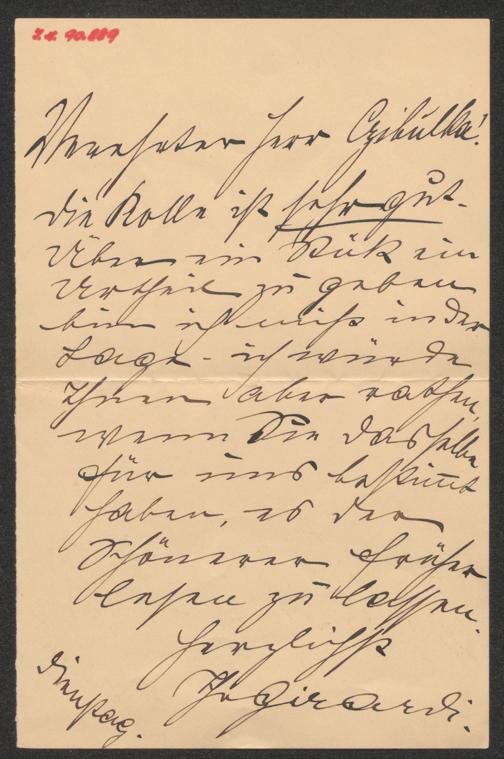 Verehrter Herr Czibulka!
die Rolle ist sehr gut.
Über ein Stück ein
Urtheil zu geben
bin ich nicht in der
Lage - ich würde
Ihnen aber rathen,
wenn Sie dasselbe
für uns bestimmt
haben, es der
Schönerer früher
lesen zu lassen.
herzlichst
Girardi.
Dienstag.